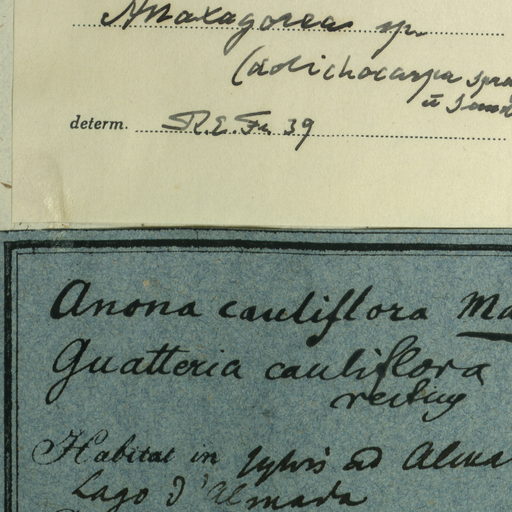 Anaxagorea sp.
(dolichocarpa
determ. R.E.Fr. 39
Anona cauliflora Ma
Guatteria cauliflora
rectius
Habitat in sylvis ad Alma
Lago d'Almada